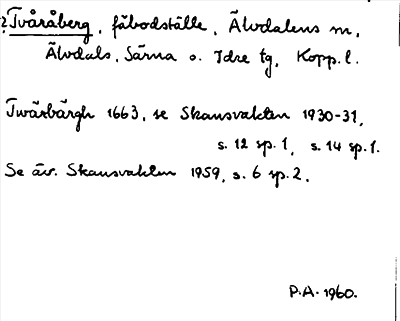 ? Tvåråberg, fäbodställe, Älvdalens sn,
Älvdals, Särna o. Idre tg, Kopp. l.
Twärbärgh 1663, se Skansvakten 1930-31,
s. 12 sp. 1, s. 14 sp. 1.
Se äv. Skansvakten 1959, s. 6 sp. 2.
P.A. 1960.